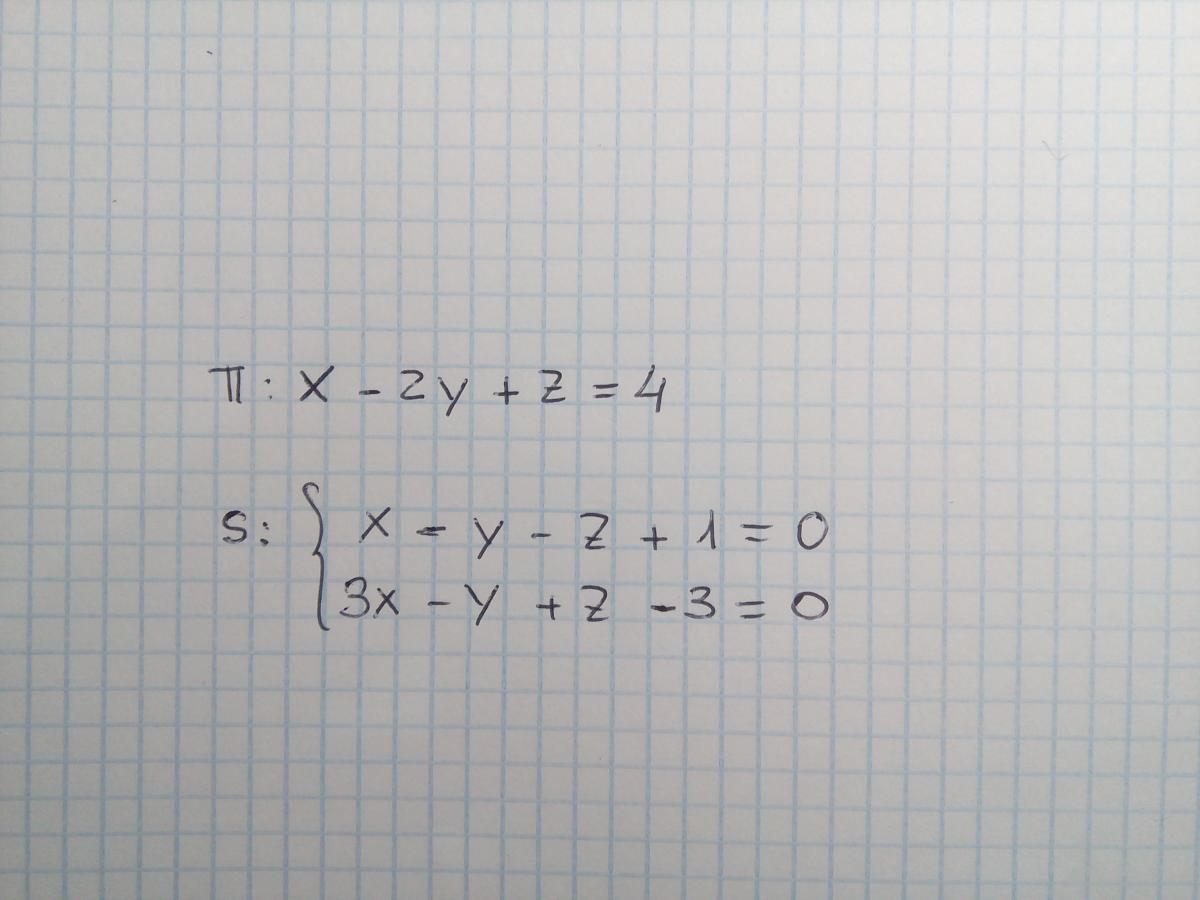 π: x - 2y + z = 4
S: { x - y - z + 1 = 0
3x - y + z - 3 = 0